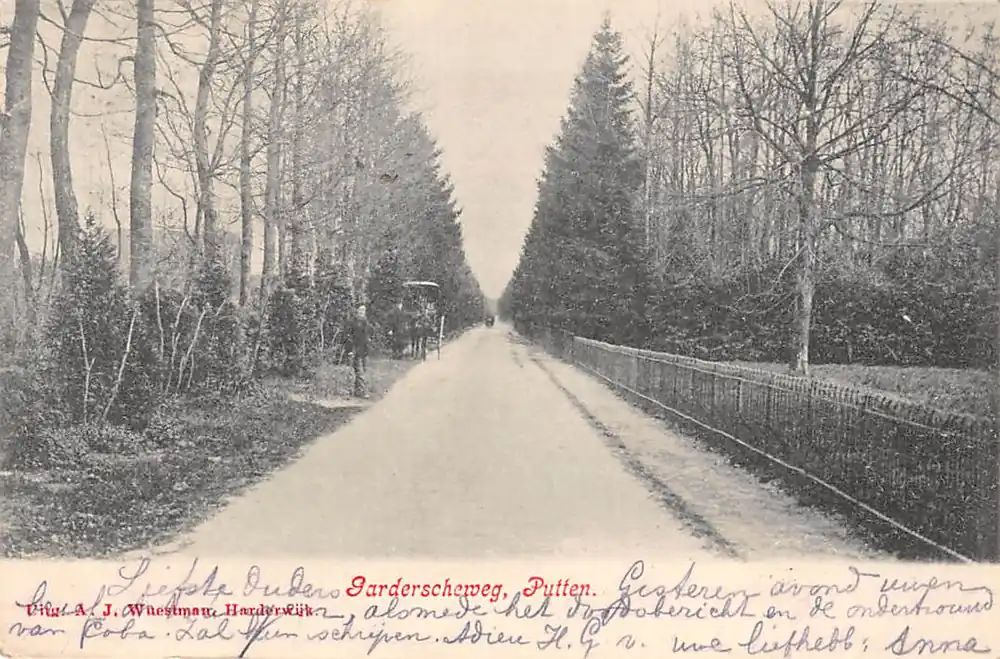 Garderscheweg, Putten.
Uitg. A. J. Wuestman, Harderwijk.
Liefste Ouders Gisteren avond uwen
ontvangen, alsmede het doodsbericht en de ondertrouw
van Coba. Zal hun schrijven. Adieu H. G. v. uwe liefhebb: Anna